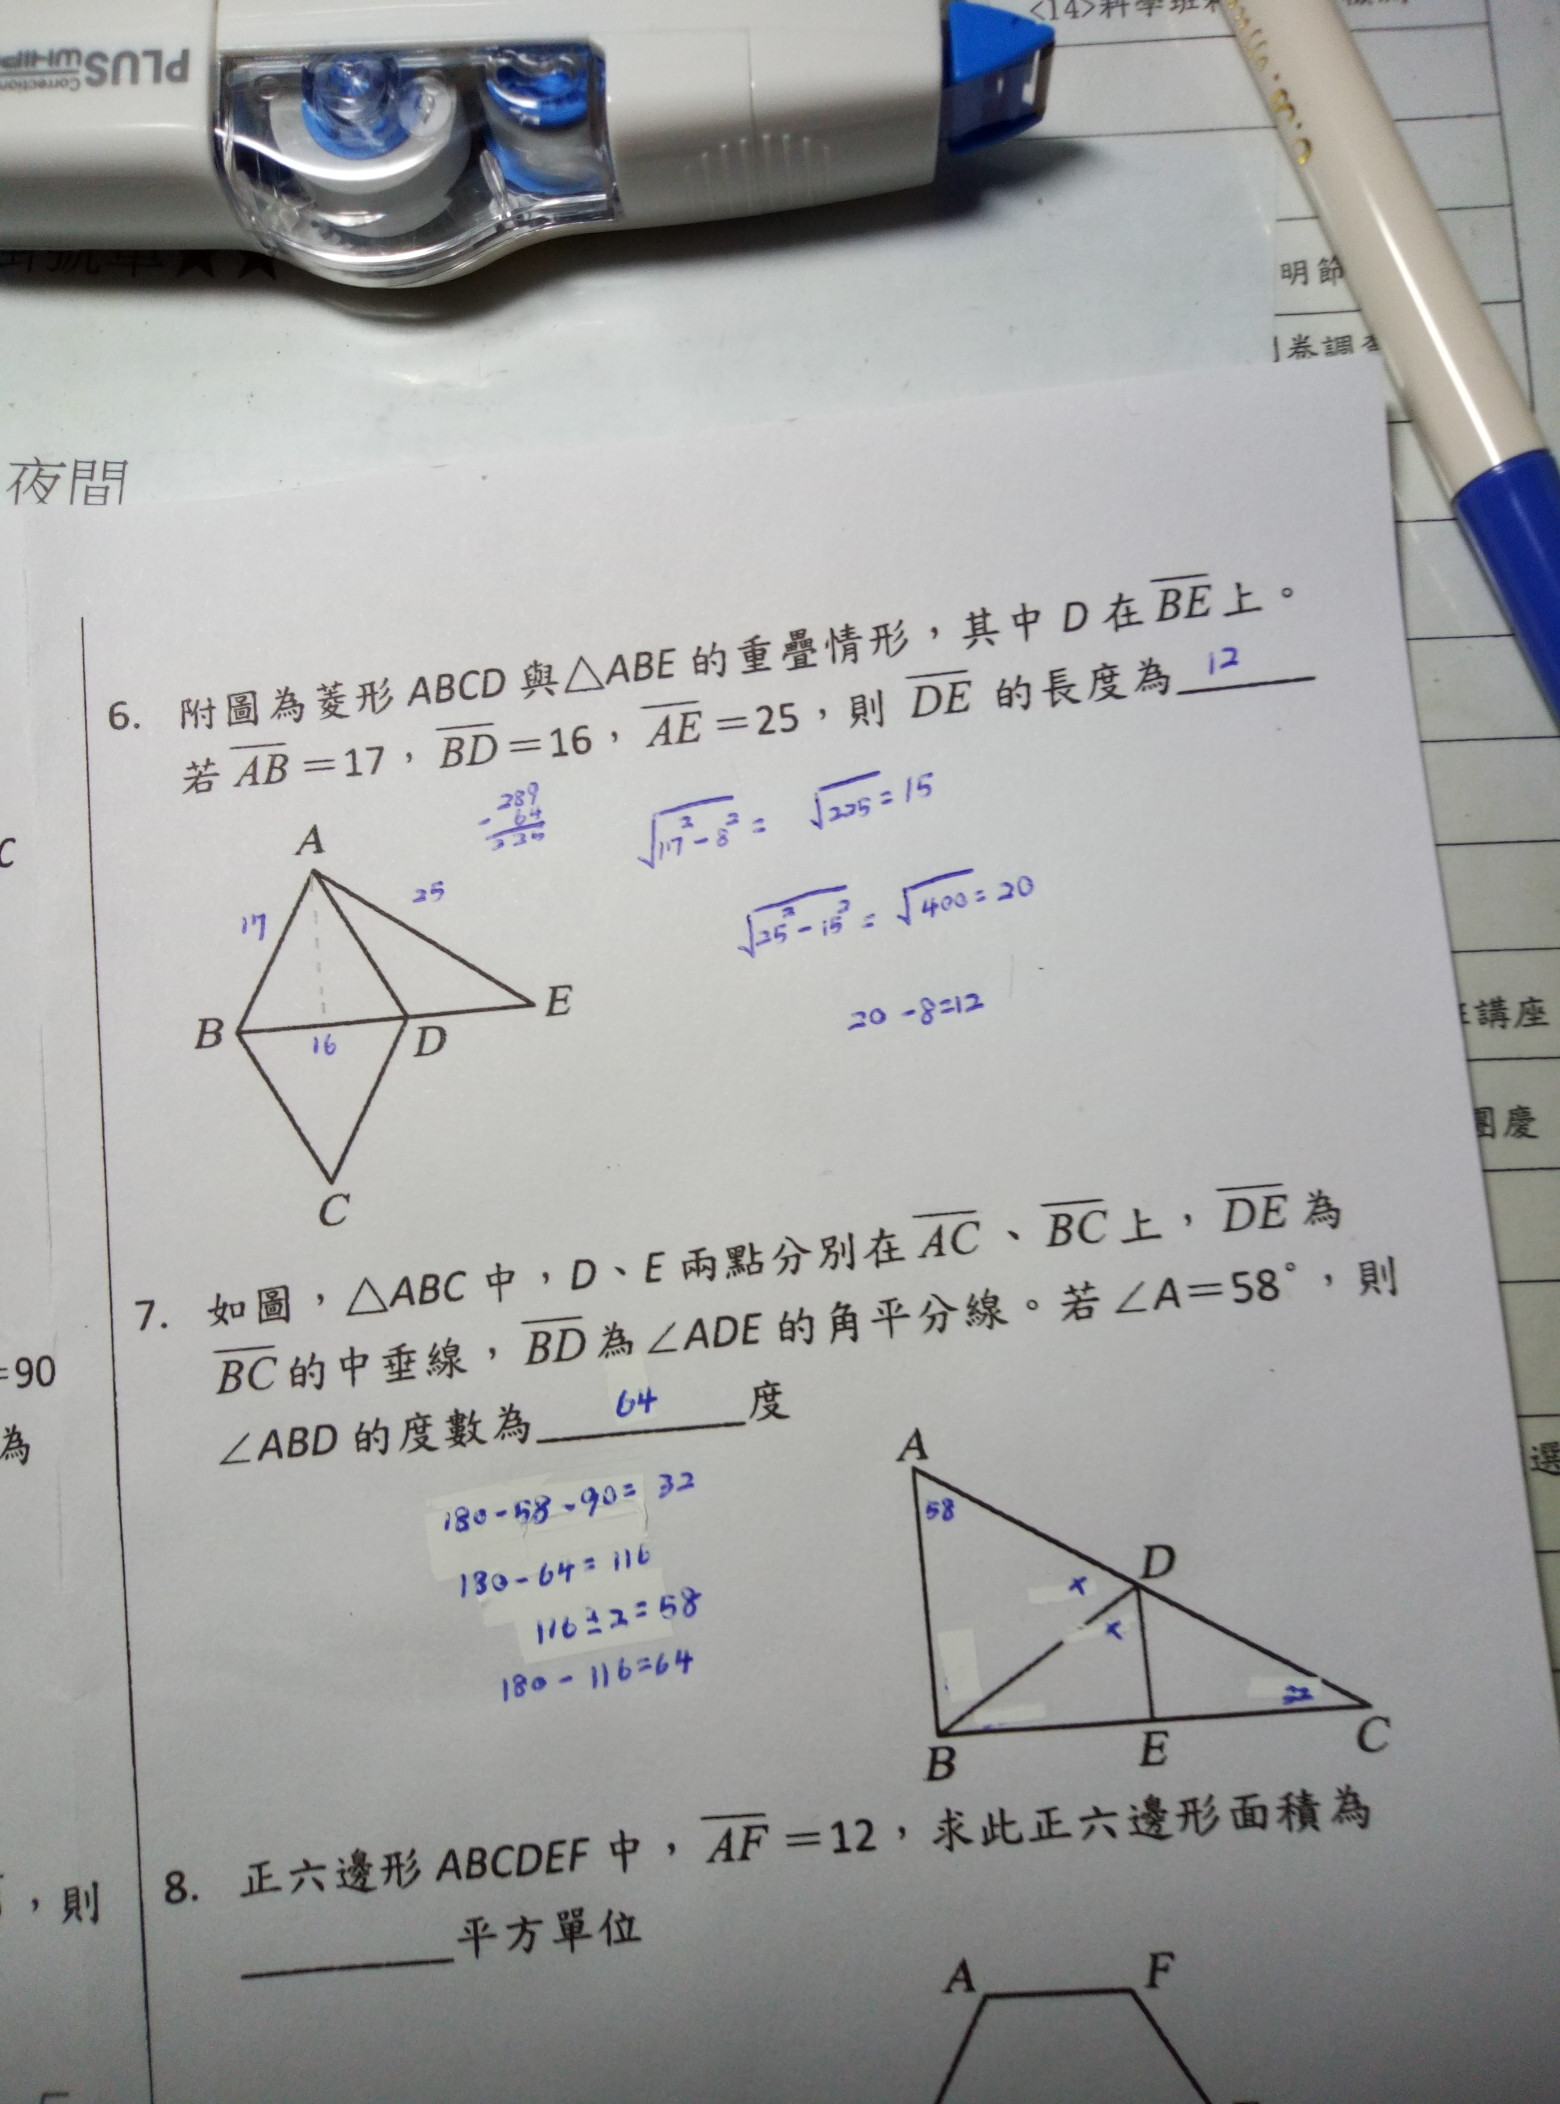 PLUS
Correction
WHIP
<14>科學班
明節
卷調查
夜間
講座
團慶
選
C
=90
為
，則
6. 附圖為菱形 ABCD 與△ABE 的重疊情形，其中 D 在 BE 上。
若 AB =17，BD =16，AE =25，則 DE 的長度為 12
289
- 64
225
√17²-8² = √225 = 15
√25²-15² = √400 = 20
20-8=12
A
17
25
B
16
D
E
C
7. 如圖，△ABC 中，D、E 兩點分別在 AC、BC 上，DE 為
BC 的中垂線，BD 為∠ADE 的角平分線。若∠A=58°，則
∠ABD 的度數為 64 度
180-58-90= 32
180-64= 116
116÷2=58
180-116=64
A
58
D
x
x
32
B
E
C
8. 正六邊形 ABCDEF 中，AF =12，求此正六邊形面積為
平方單位
A
F